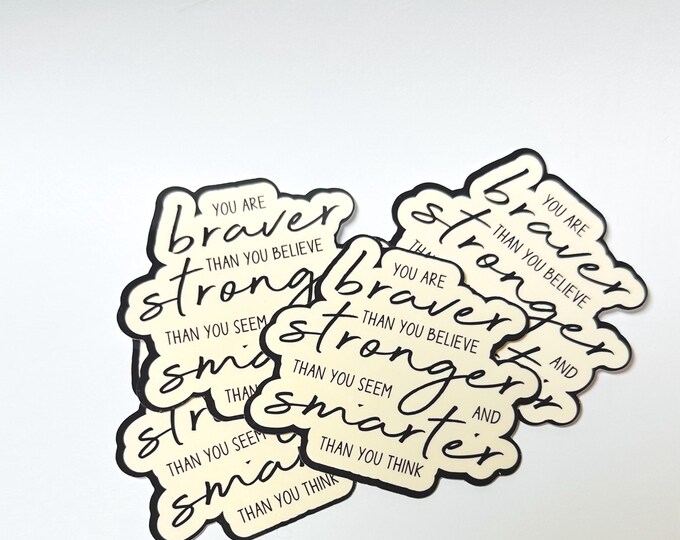 YOU ARE
braver
THAN YOU BELIEVE
strong
THAN YOU SEEM
sma
THAN
YOU ARE
braver
THAN YOU BELIEVE
stronger
THAN YOU SEEM AND
smarter
THAN YOU THINK
YOU ARE
braver
THAN YOU BELIEVE
stronger
AND
THAN YOU SEEM
smar
THAN YOU THINK